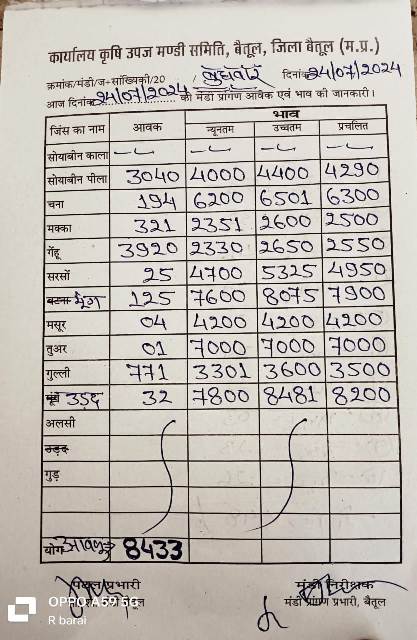 कार्यालय कृषि उपज मण्डी समिति, बैतूल, जिला बैतूल (म.प्र.)
क्रमांक/मंडी/ज+सांख्यिकी/20 / बुधवार दिनांक 24/07/2024
आज दिनांक 24/07/2024 की मंडी प्रांगण आवक एवं भाव की जानकारी।
भाव
जिंस का नाम आवक न्यूनतम उच्चतम प्रचलित
सोयाबीन काला
सोयाबीन पीला 3040 4000 4400 4290
चना 194 6200 6501 6300
मक्का 321 2351 2600 2500
गेंहू 3920 2330 2650 2550
सरसों 25 4700 5325 4950
मूंग 125 7600 8075 7900
मसूर 04 4200 4200 4200
तुअर 01 7000 7000 7000
गुल्ली 771 3301 3600 3500
उड़द 32 7800 8481 8200
अलसी
उड़द
गुड़
योग आवक 8433
प्रभारी मंडी निरीक्षक
बैतूल मंडी प्रांगण प्रभारी, बैतूल
OPPO A59 5G
R barai